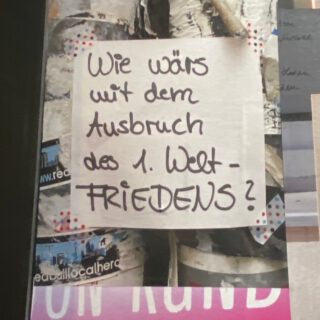 Wie wärs
mit dem
Ausbruch
des 1. Welt-
FRIEDENS?
www.red
redbulllocalhero
ON RUND